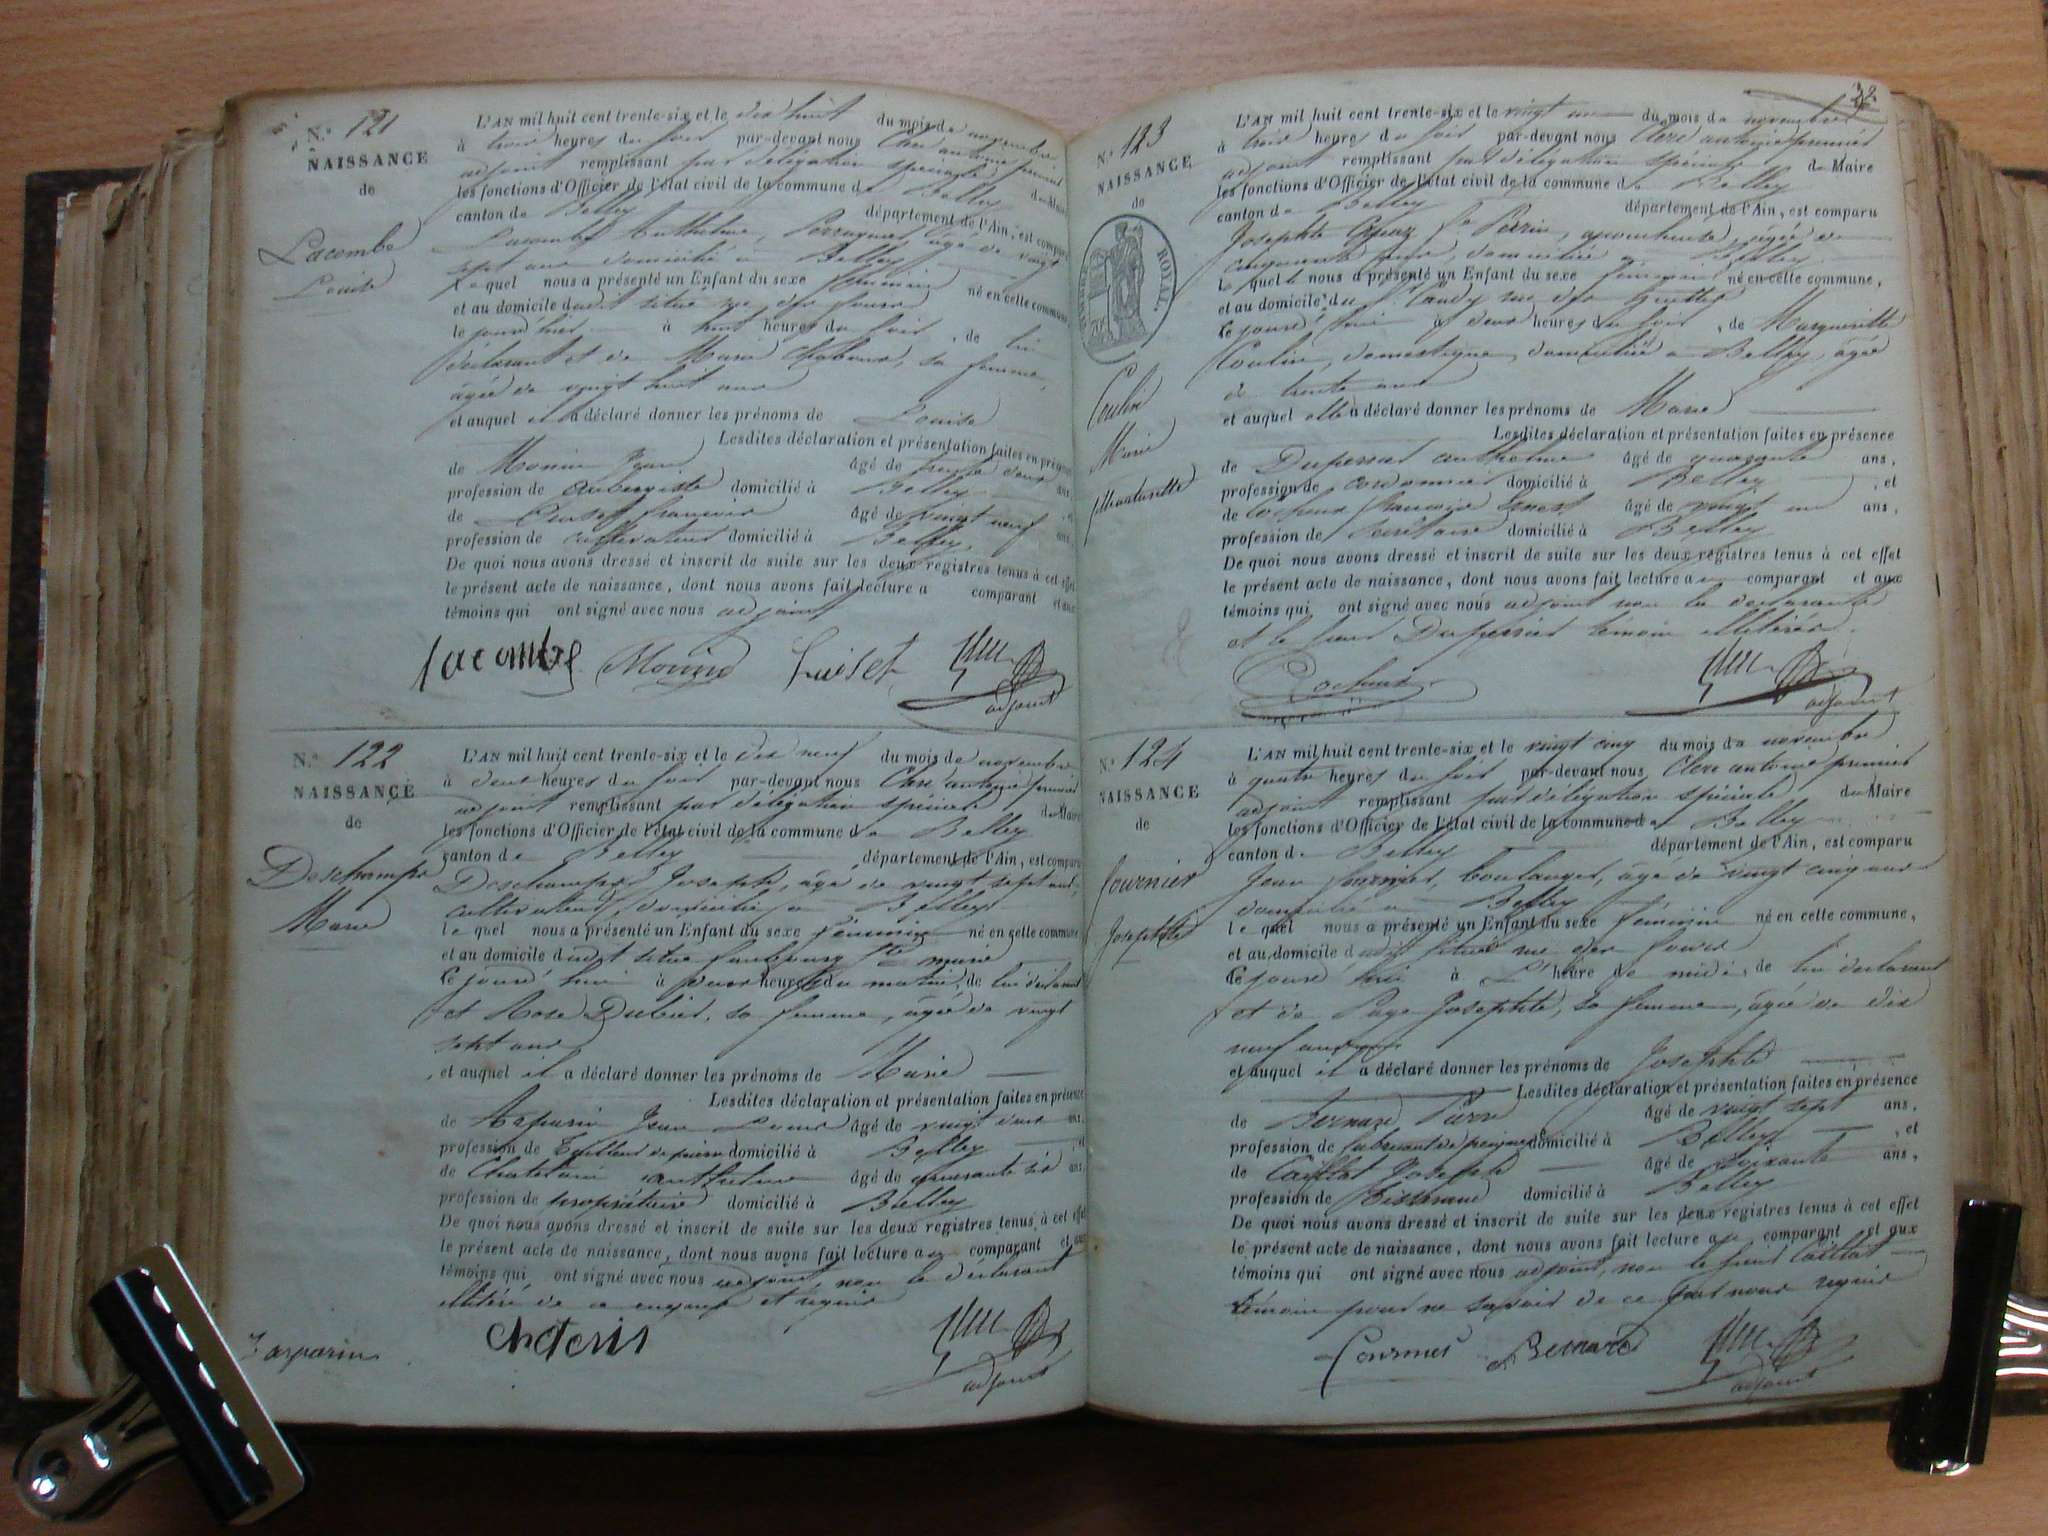 N.° 121
NAISSANCE
de
Lacombe
Louise
L'AN mil huit cent trente-six et le dix huit du mois de novembre
à trois heures du soir par-devant nous Clerc antoine premier
adjoint remplissant par délégation spéciale du Maire
les fonctions d'Officier de l'état civil de la commune de Belley
canton de Belley département de l'Ain, est comparu
Lacombe Anthelme, Perruquier, âgé de vingt
sept ans domicilié à Belley
Lequel nous a présenté un Enfant du sexe féminin né en cette commune,
et au domicile dudit situé rue des fours
le jour d'hier à huit heures du soir, de lui
déclarant et de Marie Chaboud, sa femme,
âgée de vingt huit ans
et auquel il a déclaré donner les prénoms de Louise
Lesdites déclaration et présentation faites en présence
de Monin âgé de trente deux ans,
profession de aubergiste domicilié à Belley
de Luiset françois âgé de vingt neuf ans,
profession de cultivateur domicilié à Belley
De quoi nous avons dressé et inscrit de suite sur les deux registres tenus à cet effet
le présent acte de naissance, dont nous avons fait lecture a comparant et aux
témoins qui ont signé avec nous adjoint
lacombe Monin Luiset
adjoint
N.° 122
NAISSANCE
de
Deschamps
Marie
L'AN mil huit cent trente-six et le dix neuf du mois de novembre
à deux heures du soir par-devant nous Clerc antoine premier
adjoint remplissant par délégation spéciale du Maire
les fonctions d'Officier de l'état civil de la commune de Belley
canton de Belley département de l'Ain, est comparu
Deschamps Joseph, âgé de vingt sept ans,
cultivateur, domicilié à Belley
lequel nous a présenté un Enfant du sexe féminin né en cette commune
et au domicile dudit situé faubourg Ste marie
le jour d'hier à heures du matin, de lui déclarant
et Rose Dubiet, sa femme, âgée de vingt
sept ans
et auquel il a déclaré donner les prénoms de Marie
Lesdites déclaration et présentation faites en présence
de Jean Louis âgé de vingt deux ans,
profession de Tailleur de pierre domicilié à Belley, et
de anthelme âgé de quarante six ans,
profession de propriétaire domicilié à Belley
De quoi nous avons dressé et inscrit de suite sur les deux registres tenus à cet effet
le présent acte de naissance, dont nous avons fait lecture au comparant et aux
témoins qui ont signé avec nous adjoint, non le déclarant
illitéré de ce enquis et requis
adjoint
N.° 123
NAISSANCE
de
ROYAL
Coulin
Marie
L'AN mil huit cent trente-six et le vingt un du mois de novembre
à trois heures du soir par-devant nous Clerc antoine premier
adjoint remplissant par délégation spéciale du Maire
les fonctions d'Officier de l'état civil de la commune de Belley
canton de Belley département de l'Ain, est comparu
Josephte fe Perrin, accoucheuse, âgée de
cinquante ans, domiciliée à Belley
lequelle nous a présenté un Enfant du sexe féminin né en cette commune,
et au domicile du rue des
le jour d'hier à deux heures du soir, de Marguerite
Coulin, domestique, domiciliée à Belley, âgée
de trente ans
et auquel elle a déclaré donner les prénoms de Marie
Lesdites déclaration et présentation faites en présence
de Duperrat anthelme âgé de quarante ans,
profession de cordonnier domicilié à Belley, et
de françois Ernest âgé de vingt un ans,
profession de Secrétaire domicilié à Belley
De quoi nous avons dressé et inscrit de suite sur les deux registres tenus à cet effet
le présent acte de naissance, dont nous avons fait lecture au comparant et aux
témoins qui ont signé avec nous adjoint non la déclarante
et le sieur témoin illitérés.
adjoint
N.° 124
NAISSANCE
de
fournier
Josephte
L'AN mil huit cent trente-six et le vingt cinq du mois de novembre
à quatre heures du soir par-devant nous Clerc antoine premier
adjoint remplissant par délégation spéciale du Maire
les fonctions d'Officier de l'état civil de la commune de Belley
canton de Belley département de l'Ain, est comparu
Jean fournier, boulanger, âgé de vingt cinq ans
domicilié à Belley
lequel nous a présenté un Enfant du sexe féminin né en cette commune,
et au domicile dudit situé rue des fours
le jour d'hier à L' heure de midi, de lui déclarant
et de Page Josephte, sa femme, âgée de dix
neuf ans
et auquel il a déclaré donner les prénoms de Josephte
Lesdites déclaration et présentation faites en présence
de Bernard Pierre âgé de vingt sept ans,
profession de fabricant de peignes domicilié à Belley, et
de Caillat Joseph âgé de soixante ans,
profession de Tisserand domicilié à Belley
De quoi nous avons dressé et inscrit de suite sur les deux registres tenus à cet effet
le présent acte de naissance, dont nous avons fait lecture au comparant et aux
témoins qui ont signé avec nous adjoint, non le sieur Caillat
témoin pour ne savoir de ce fait nous requis
Bernard
adjoint